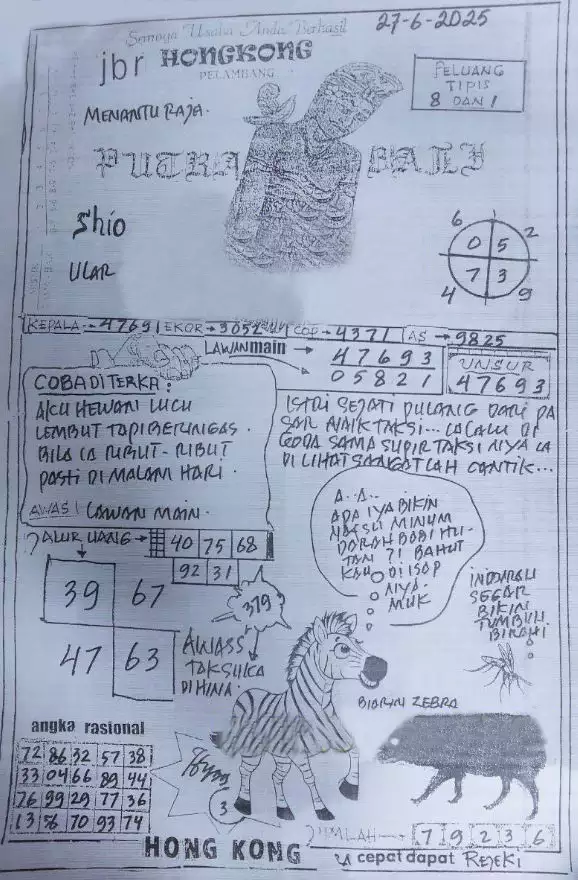 Semoga Usaha Anda Berhasil
27-6-2025
jbr HONGKONG
PELAMBANG
PELUANG
TIPIS
8 DAN 1
MENANTU RAJA.
PUTRA BALI
Shio
ULAR
6 1 2
0 5
7 3
4 9
KEPALA → 47691 EKOR → 3052 COP → 4371 AS → 9825
LAWAN main → 47693
05821
UNSUR
47693
COBA DI TERKA :
AKU HEWAN LUCU
LEMBUT TAPI BERINGAS.
BILA IA RIBUT-RIBUT
PASTI DI MALAM HARI.
AWAS! LAWAN MAIN.
ISTRI SEJATI PULANG DARI PA
SAR NAIK TAKSI... LALALU DI
GODA SAMA SUPIR TAKSI NIYA IA
DI LIHAT SANGATLAH CANTIK...
A.. A..
ADA IYA BIKIN
NAFSU MINUM
DARAH BABI HU-
TAN ?! BAHUT
KAU DI ISOP
NIYA.
MUK
JALUR UANG → 40 75 68
92 31
39 67
47 63
379
AWASS
TAK SUKA
DI HINA.
INDARAH
SEGAR
BIKIN
TUMBUH
BIRAHI
BIARIN ZEBRA
angka rasional
72 86 32 57 38
33 04 66 89 44
76 99 29 77 36
13 56 70 93 74
3
JUMLAH → 7 9 2 3 6
HONG KONG
cepat dapat REJEKI